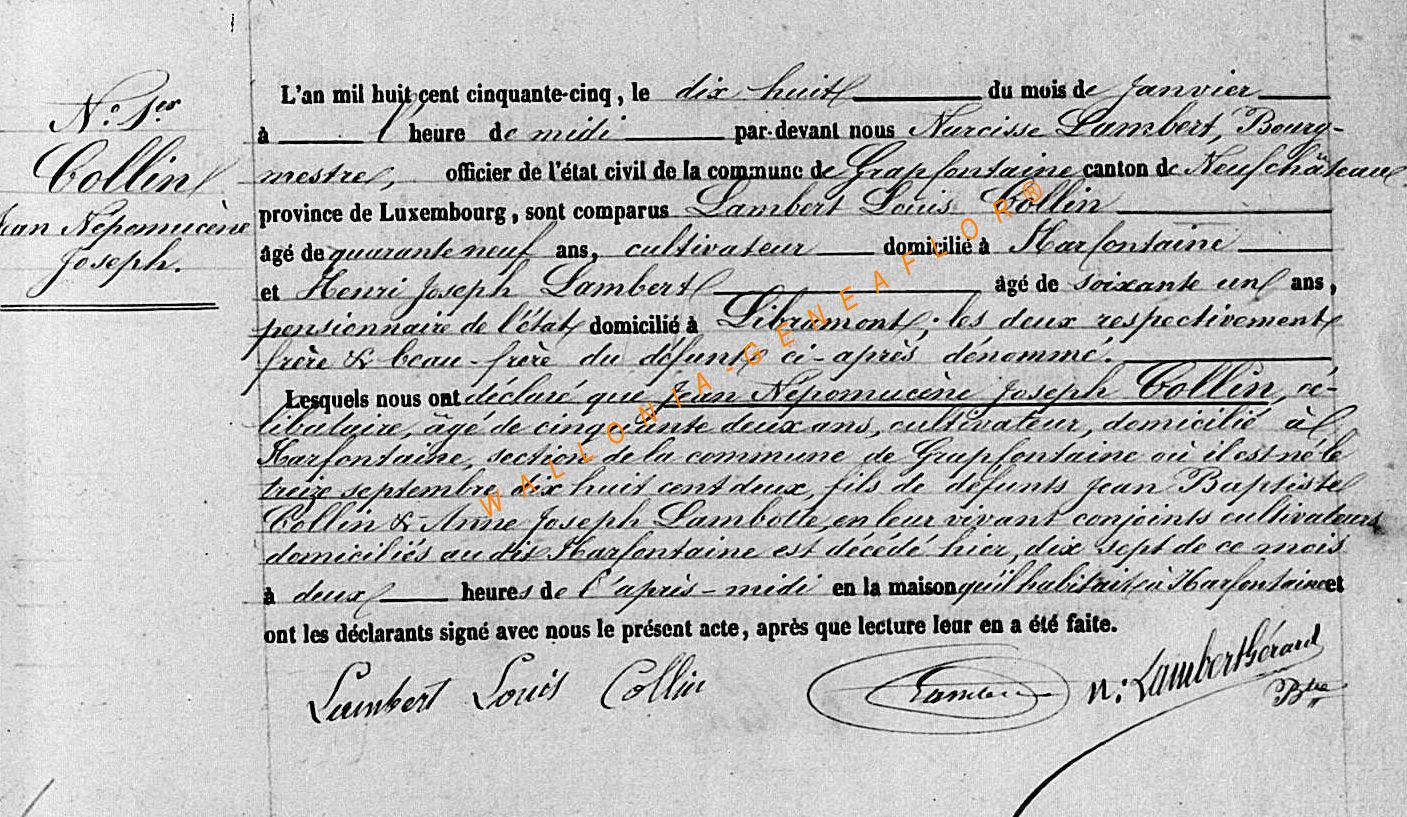 N.° 1.er
Collin
Jean Népomucène
Joseph.
L'an mil huit cent cinquante-cinq, le dix huit du mois de Janvier
à l' heure de midi par-devant nous Narcisse Lambert, Bourg-
mestre, officier de l'état civil de la commune de Grapfontaine canton de Neufchâteau
province de Luxembourg, sont comparus Lambert Louis Collin
âgé de quarante neuf ans, cultivateur domicilié à Harfontaine
et Henri Joseph Lambert âgé de soixante un ans,
pensionnaire de l'état domicilié à Libramont; les deux respectivement
frère & beau-frère du défunt ci-après dénommé.
Lesquels nous ont déclaré que Jean Népomucène Joseph Collin, cé-
libataire, âgé de cinquante deux ans, cultivateur, domicilié à
Harfontaine, section de la commune de Grapfontaine où il est né le
treize septembre dix huit cent deux, fils de défunts Jean Baptiste
Collin & Anne Joseph Lambotte, en leur vivant conjoints cultivateurs
domiciliés au dit Harfontaine est décédé hier, dix sept de ce mois
à deux heures de l'après-midi en la maison qu'il habitait à Harfontaine et
ont les déclarants signé avec nous le présent acte, après que lecture leur en a été faite.
Lambert Louis Collin Lambert N: Lambert Gérard
Btre
WALLONIA-GENEAFLOR®